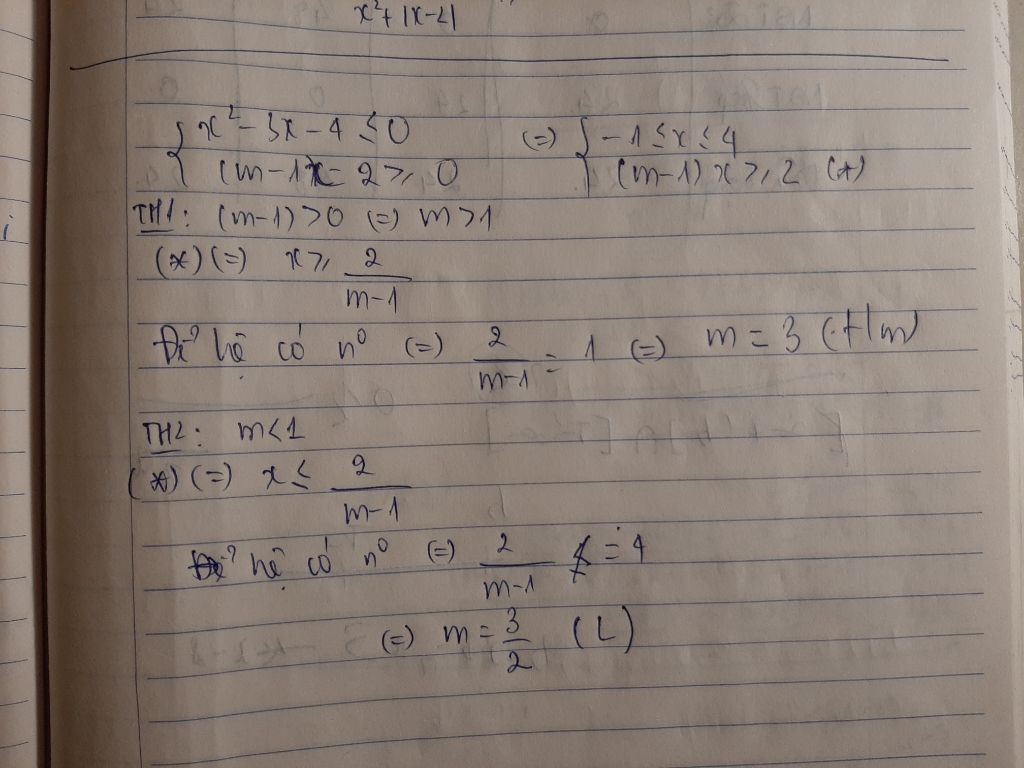 x² + |x-2|
{ x² - 3x - 4 ≤ 0 (=) { -1 ≤ x ≤ 4
(m-1)x - 2 ≥ 0 (m-1) x ≥ 2 (*)
TH1: (m-1) > 0 (=) m > 1
(*) (=) x ≥ 2/(m-1)
Để hệ có n⁰ (=) 2/(m-1) = 1 (=) m = 3 (t/m)
TH2: m < 1
(*) (=) x ≤ 2/(m-1)
Để hệ có n⁰ (=) 2/(m-1) = 4
(=) m = 3/2 (L)